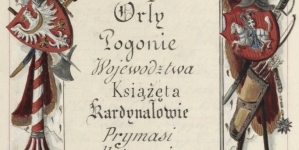 Orły
Pogonie
Województwa
Książęta
Kardynałowie
Prymasi